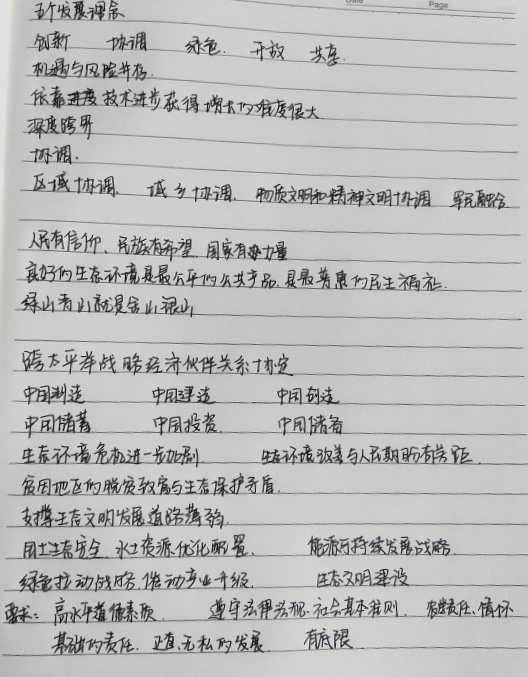 Date Page
五个发展理念
创新 协调 绿色. 开放 共享
机遇与风险并存.
依靠进度技术进步获得增长的难度很大
深度跨界
协调.
区域协调. 城乡协调. 物质文明和精神文明协调 军民融合
人民有信仰、民族有希望 国家有力量
良好的生态环境是最公平的公共产品.是最普惠的民生福祉.
绿山青山就是金山银山
跨太平洋战略经济伙伴关系协定
中国制造 中国建造 中国创造
中国储蓄 中国投资. 中国储备
生态环境危机进一步加剧 生态环境改善与人民期盼有差距.
贫困地区的脱贫致富与生态保护矛盾.
支撑生态文明发展道路薄弱.
国土生态安全 水土资源优化配置. 能源可持续发展战略.
绿色拉动战略.推动产业升级. 生态文明建设
要求: 高水平道德素质. 遵守法律法规.社会基本准则 责任、情怀
基础的责任. 正直.无私的发展 有底限